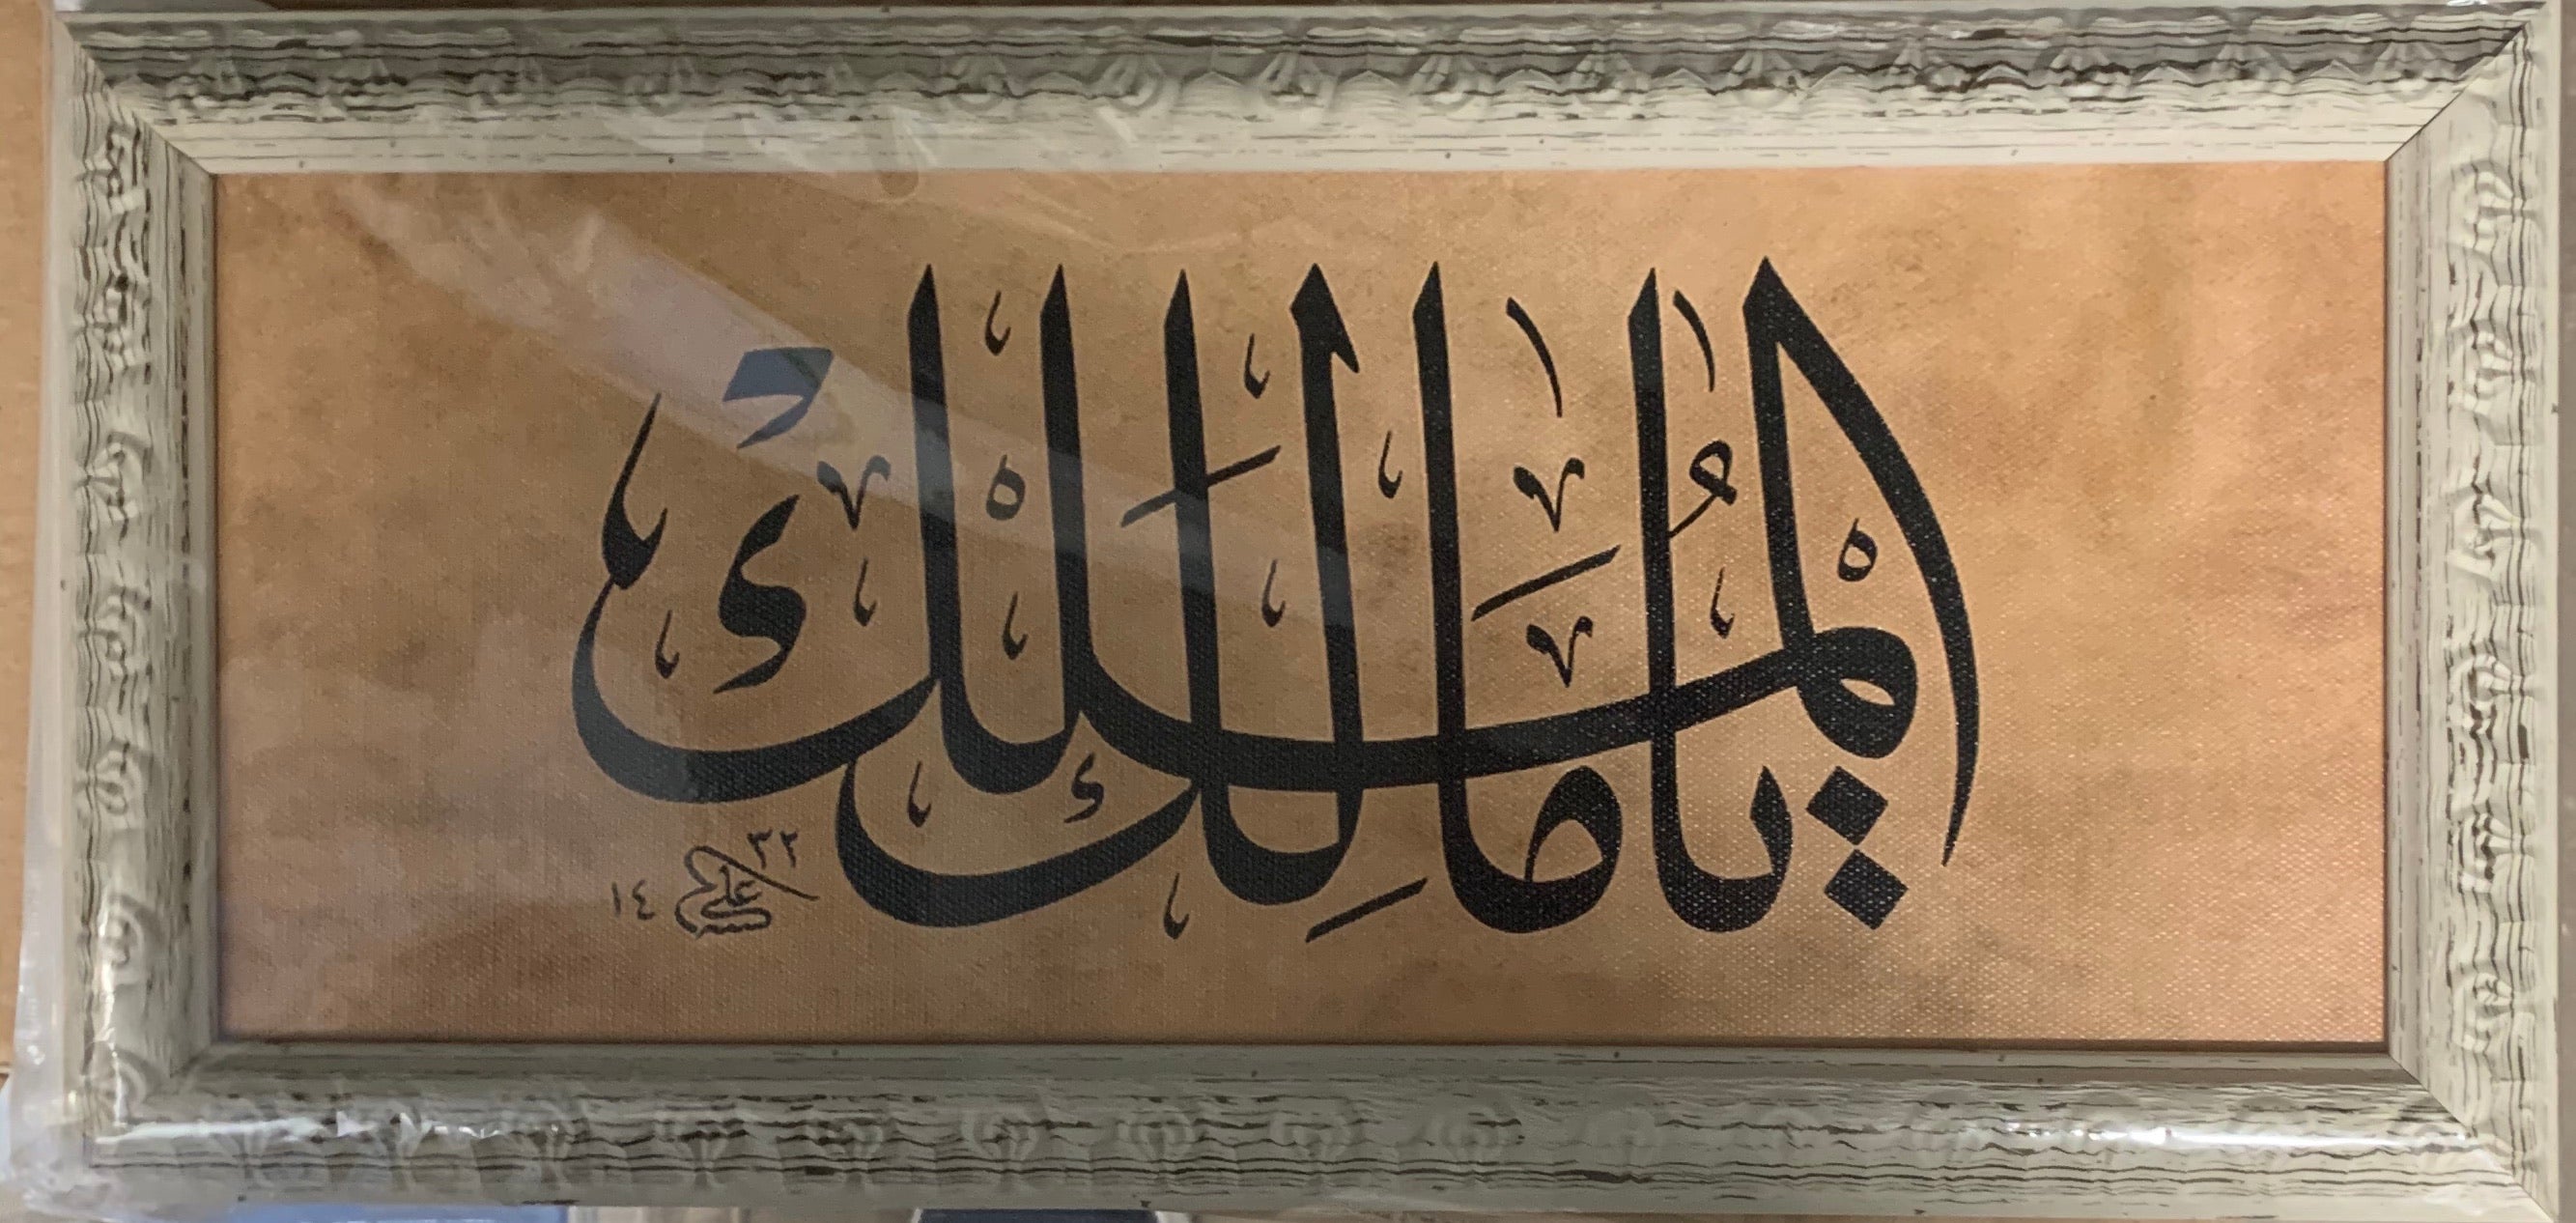 يَا مَالِكَ الْمُلْكِ
علي
١٤٣٢